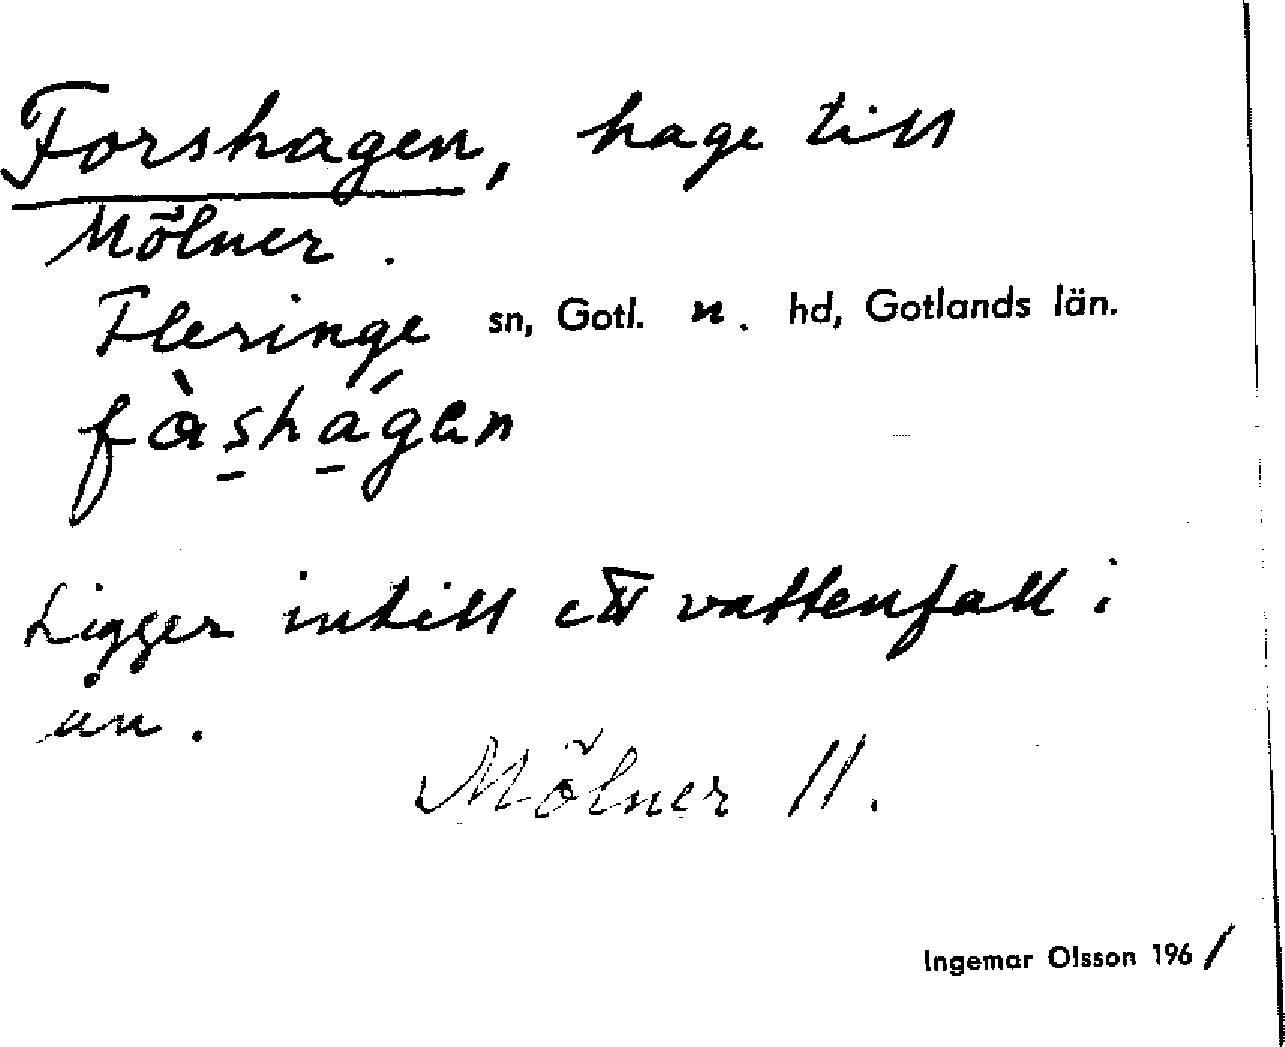 Forshagen, hage till
Mölner.
Fleringe sn, Gotl. n. hd, Gotlands län.
fàs̠há̠gen
Ligger intill ett vattenfall i
ån.
Mölner 11.
Ingemar Olsson 1961